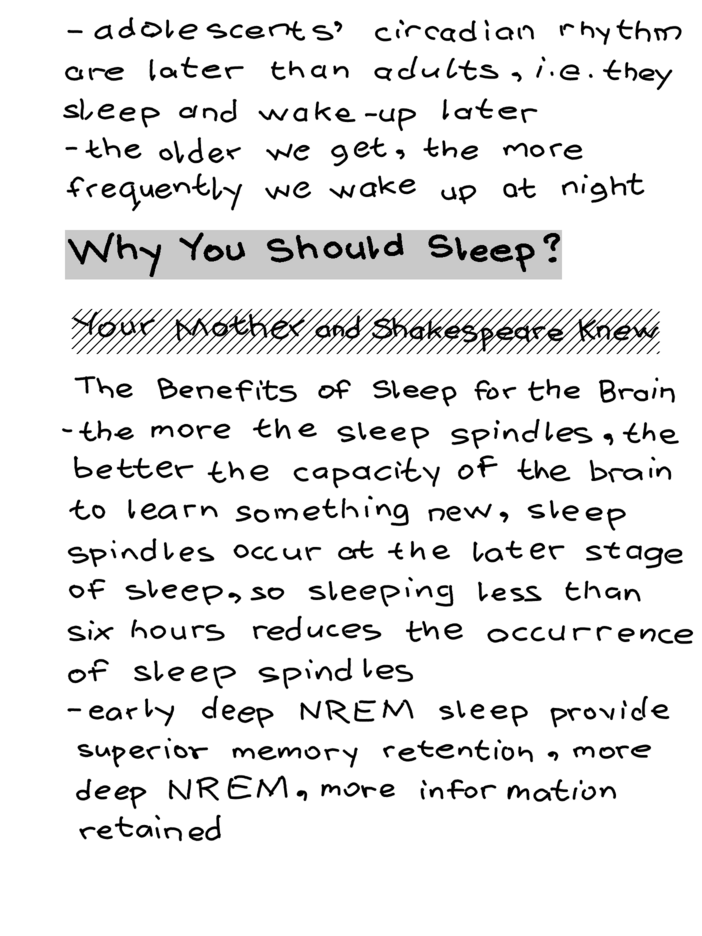 - adolescents' circadian rhythm
are later than adults, i.e. they
sleep and wake-up later
- the older we get, the more
frequently we wake up at night
Why You Should Sleep?
Your Mother and Shakespeare Knew
The Benefits of Sleep for the Brain
- the more the sleep spindles, the
better the capacity of the brain
to learn something new, sleep
spindles occur at the later stage
of sleep, so sleeping less than
six hours reduces the occurrence
of sleep spindles
- early deep NREM sleep provide
superior memory retention, more
deep NREM, more information
retained